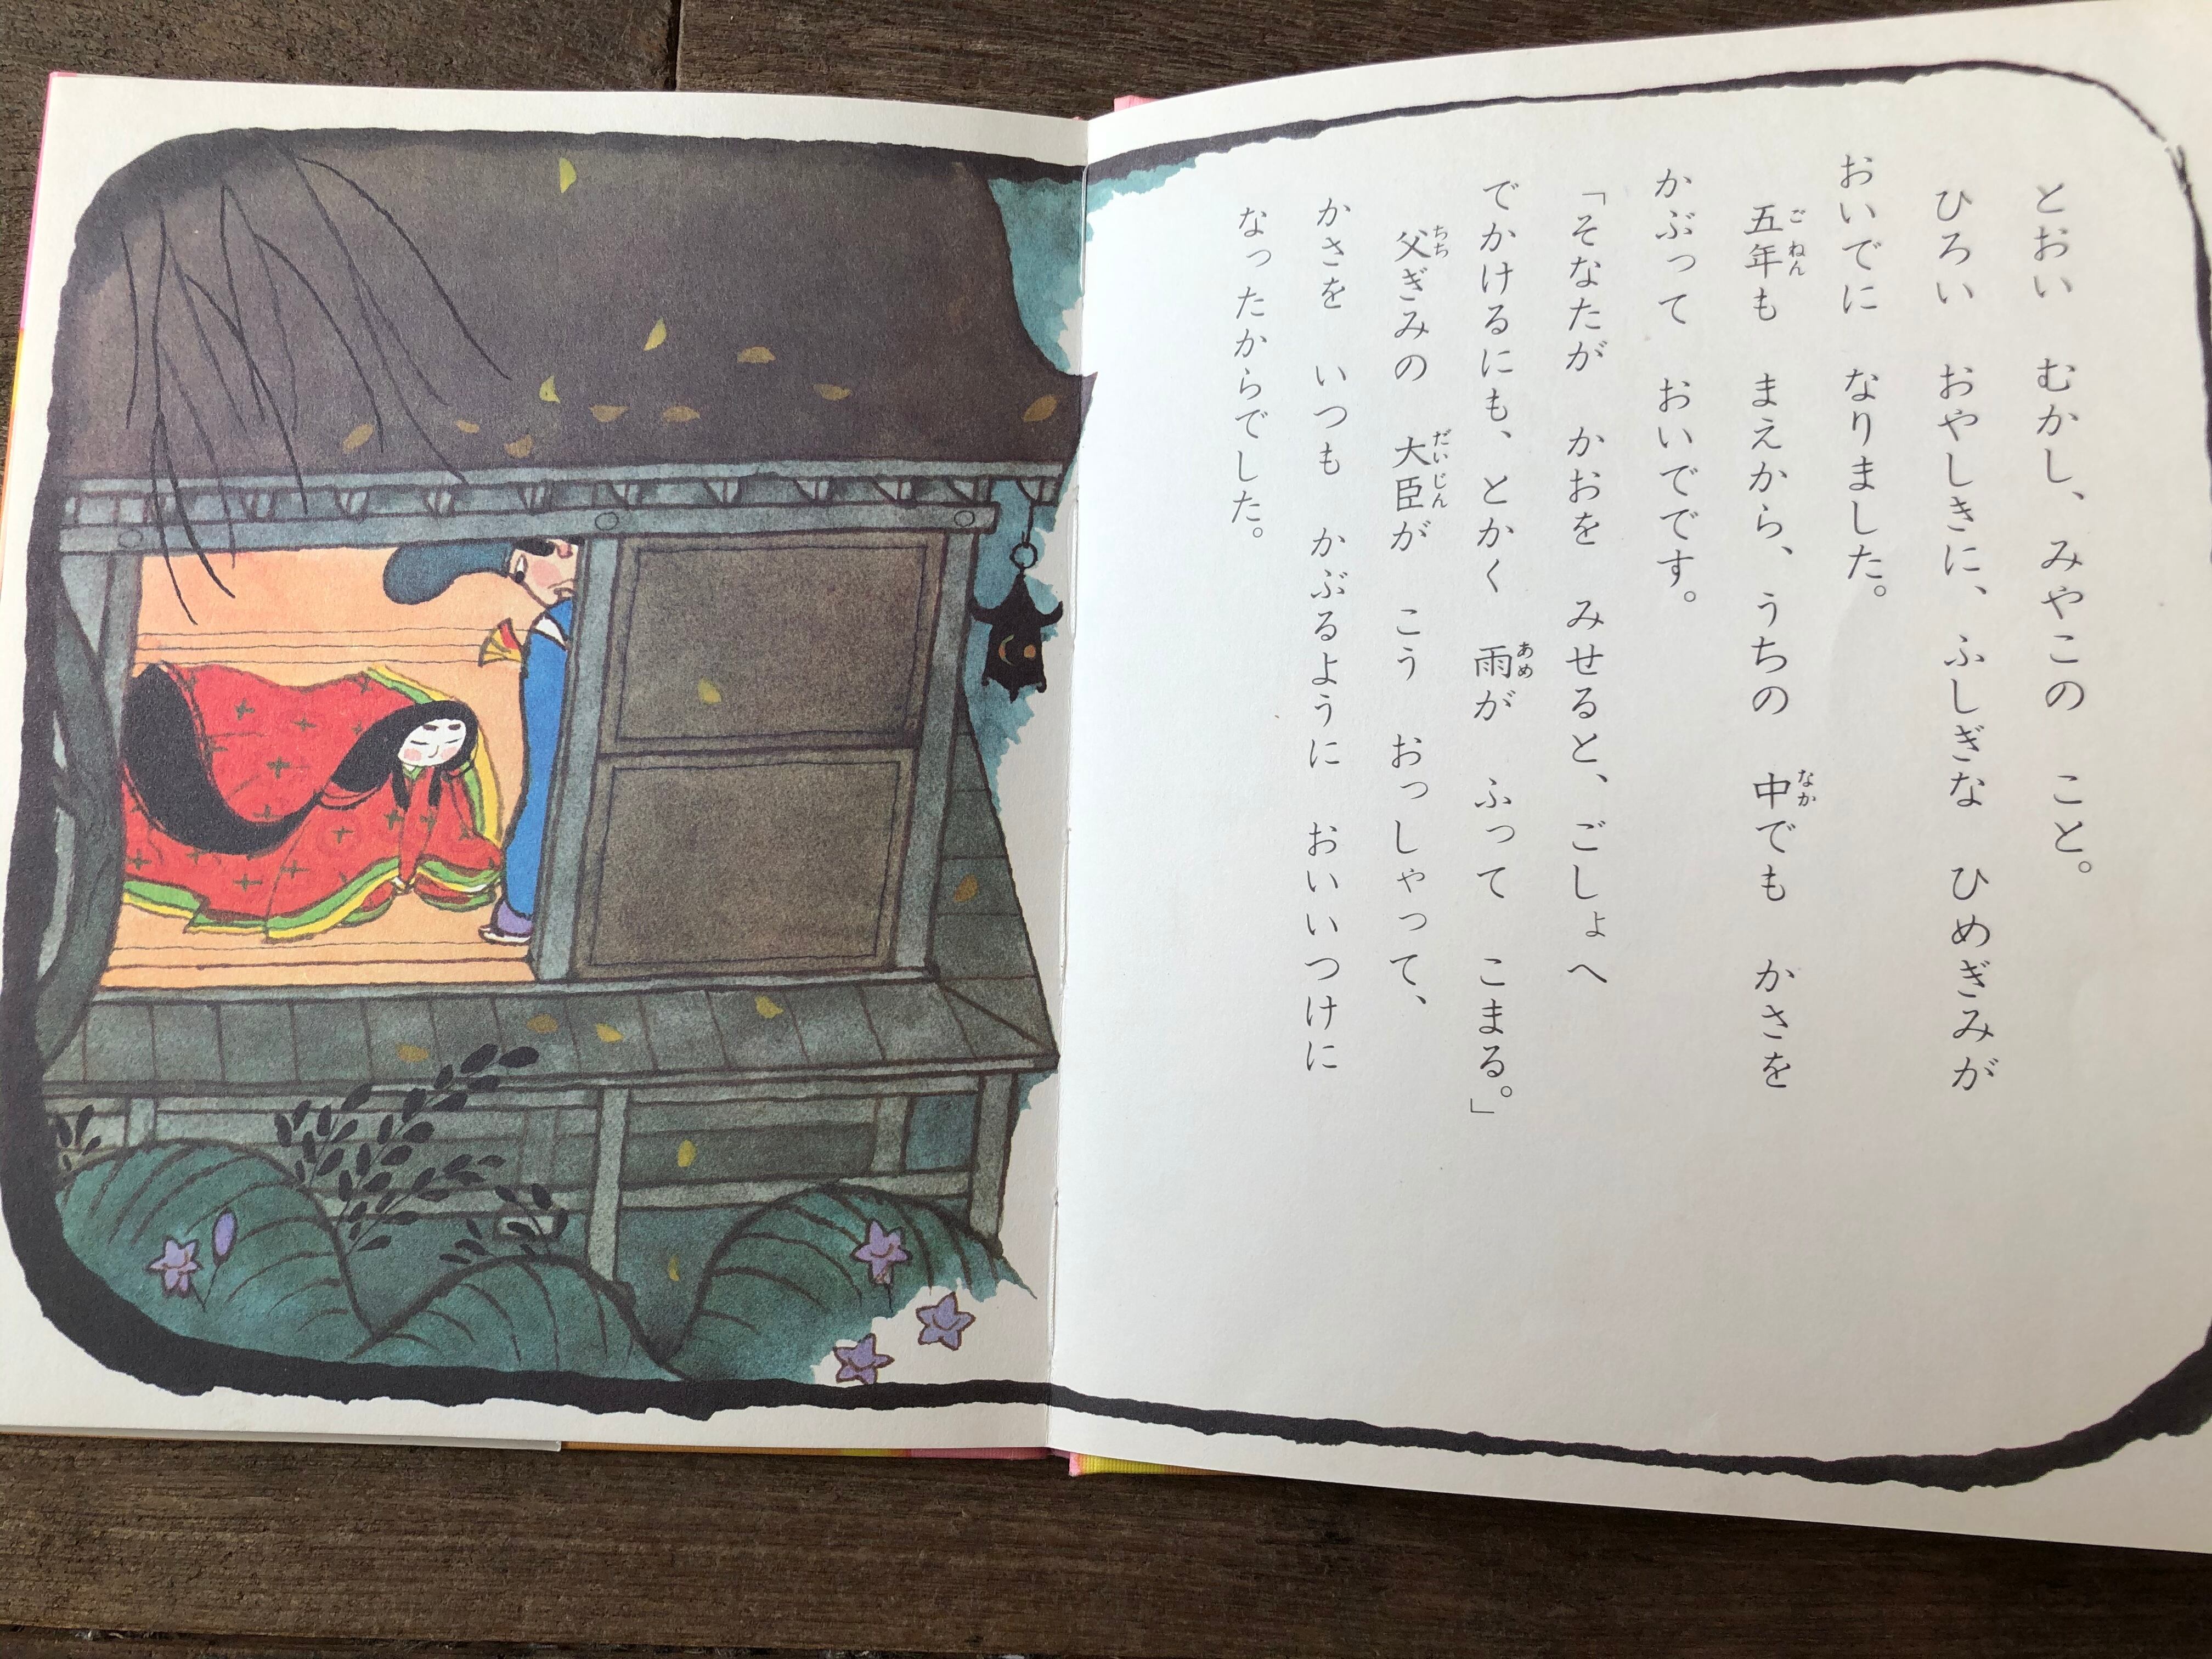 とおい　むかし、みやこの　こと。
ひろい　おやしきに、ふしぎな　ひめぎみが
おいでに　なりました。
五年も　まえから、うちの　中でも　かさを
かぶって　おいでです。
「そなたが　かおを　みせると、ごしょへ
でかけるにも、とかく　雨が　ふって　こまる。」
父ぎみの　大臣が　こう　おっしゃって、
かさを　いつも　かぶるように　おいいつけに
なったからでした。